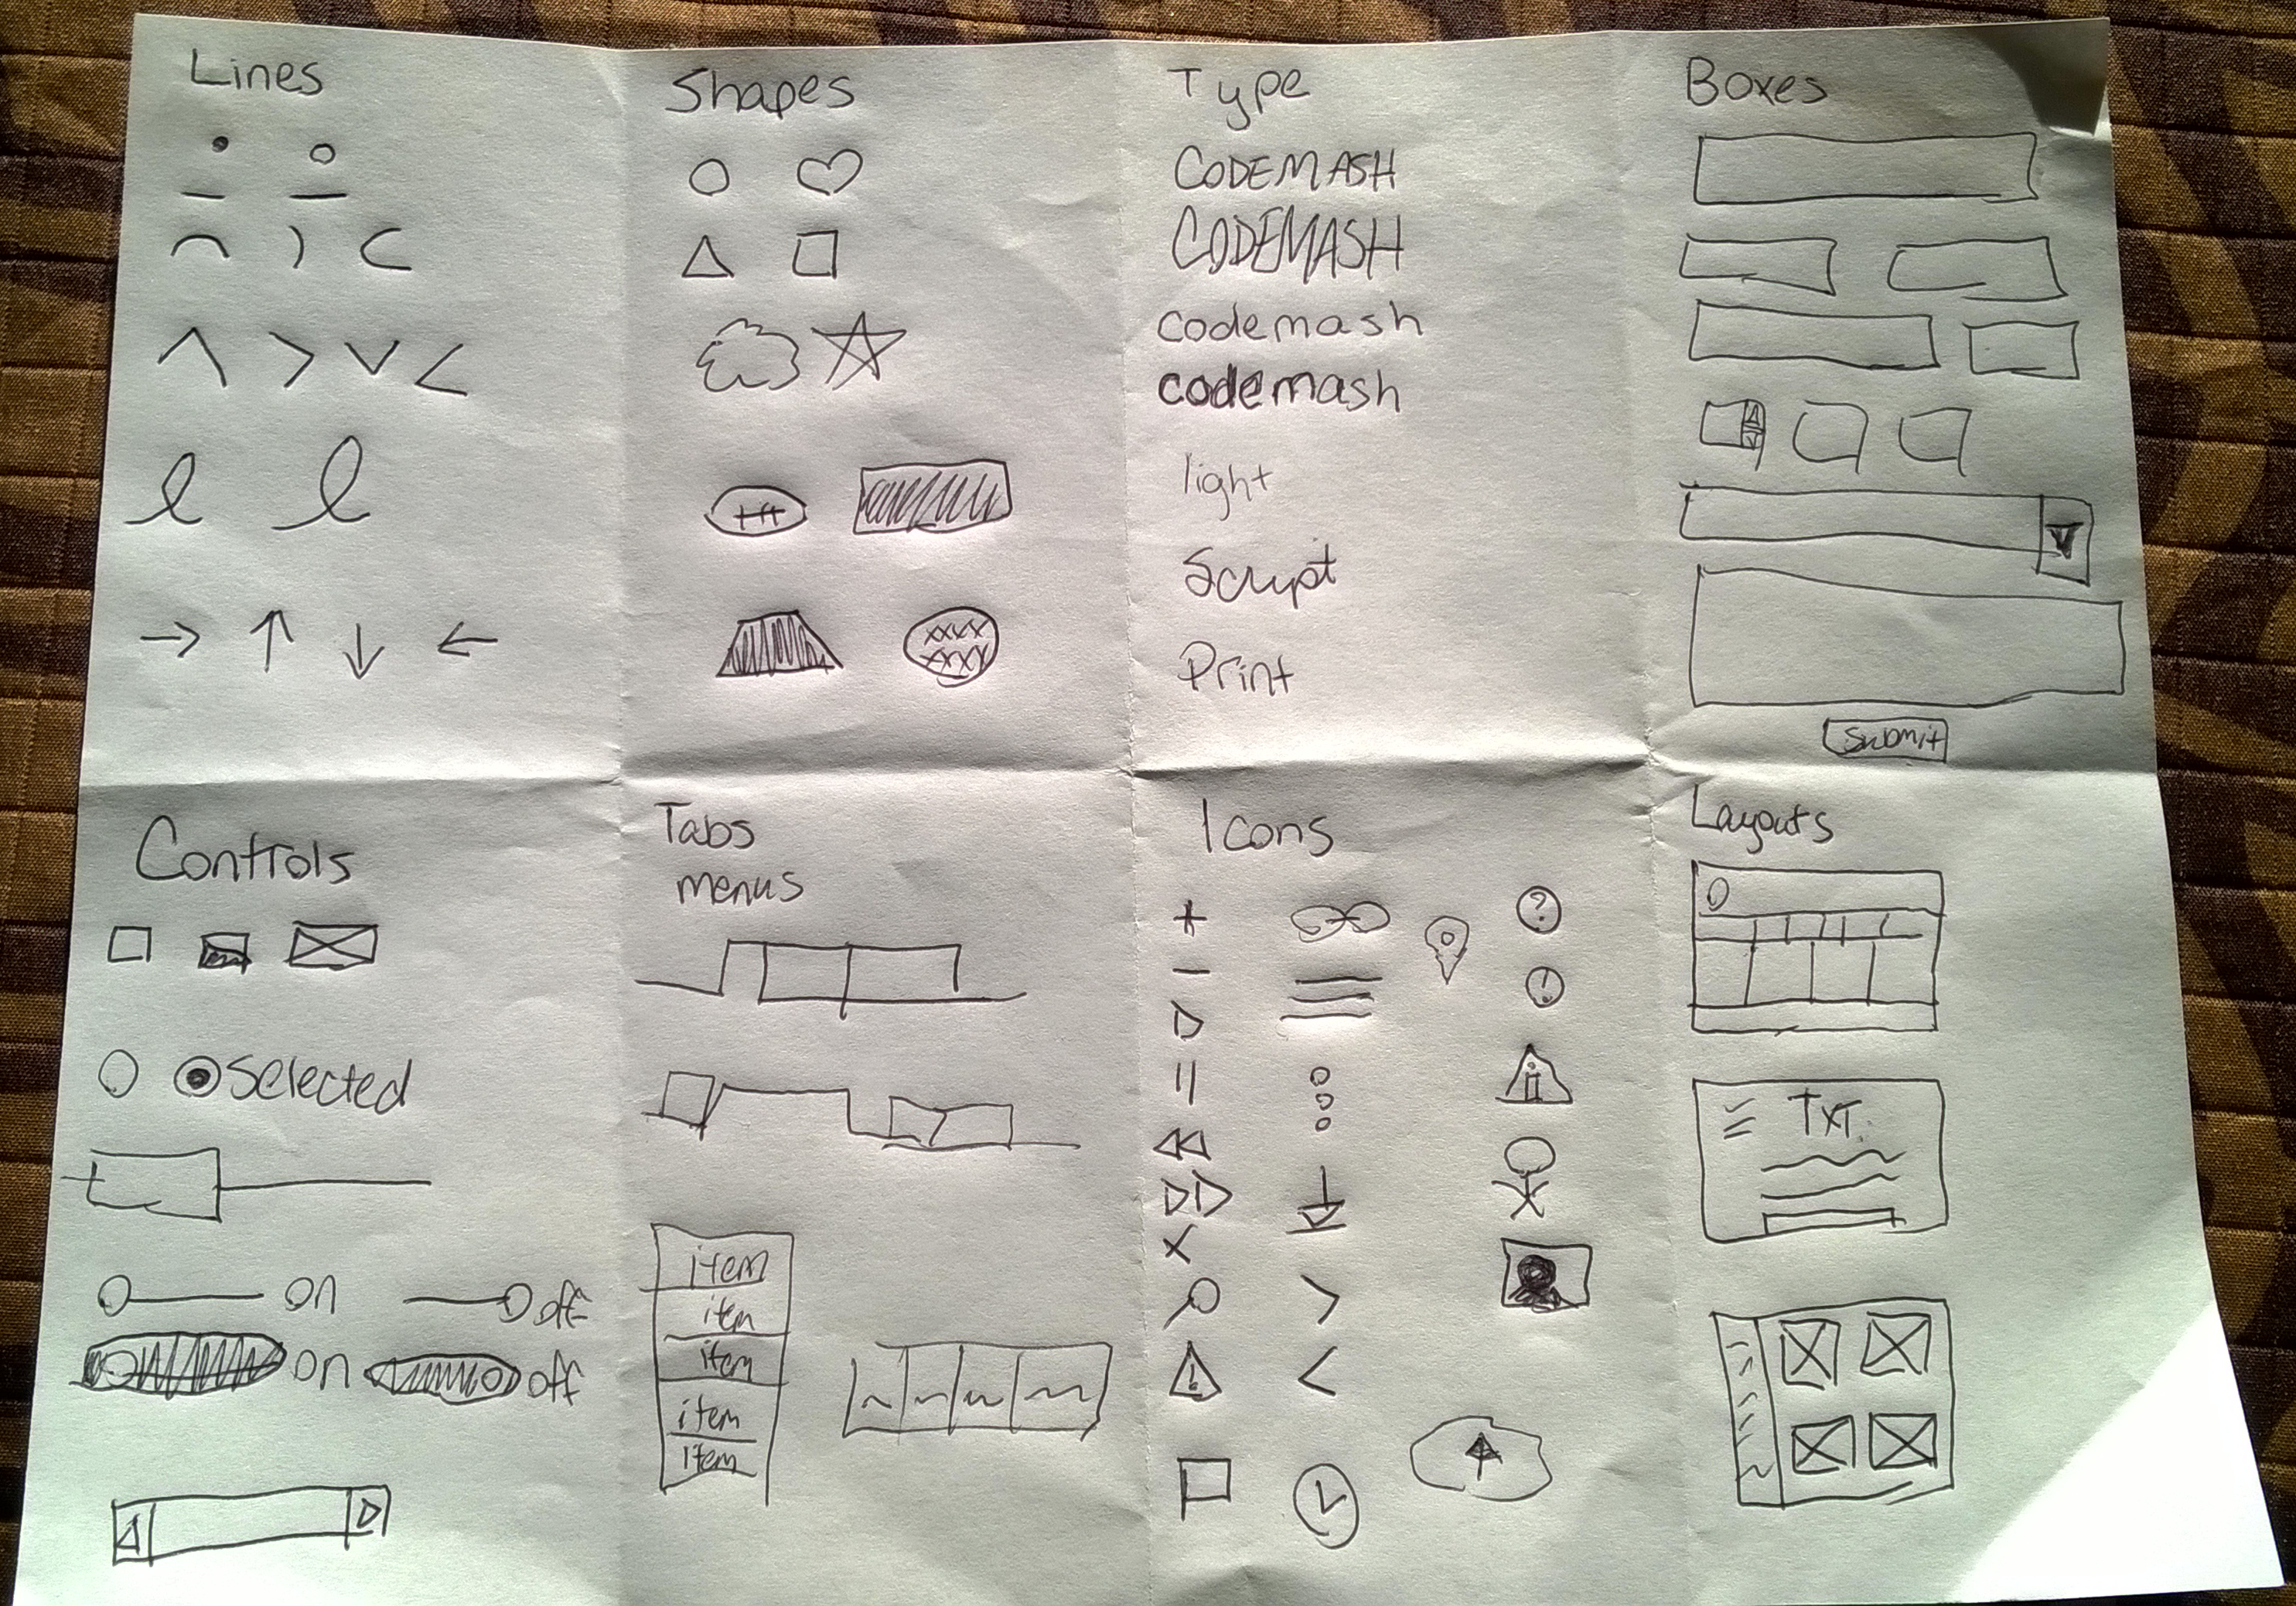 Lines
Shapes
Type
CODEMASH
CODEMASH
codemash
codemash
light
Script
Print
Boxes
Submit
Controls
Selected
on off
on off
Tabs
menus
item
item
item
item
item
Icons
?
!
i
!
Layouts
TXT